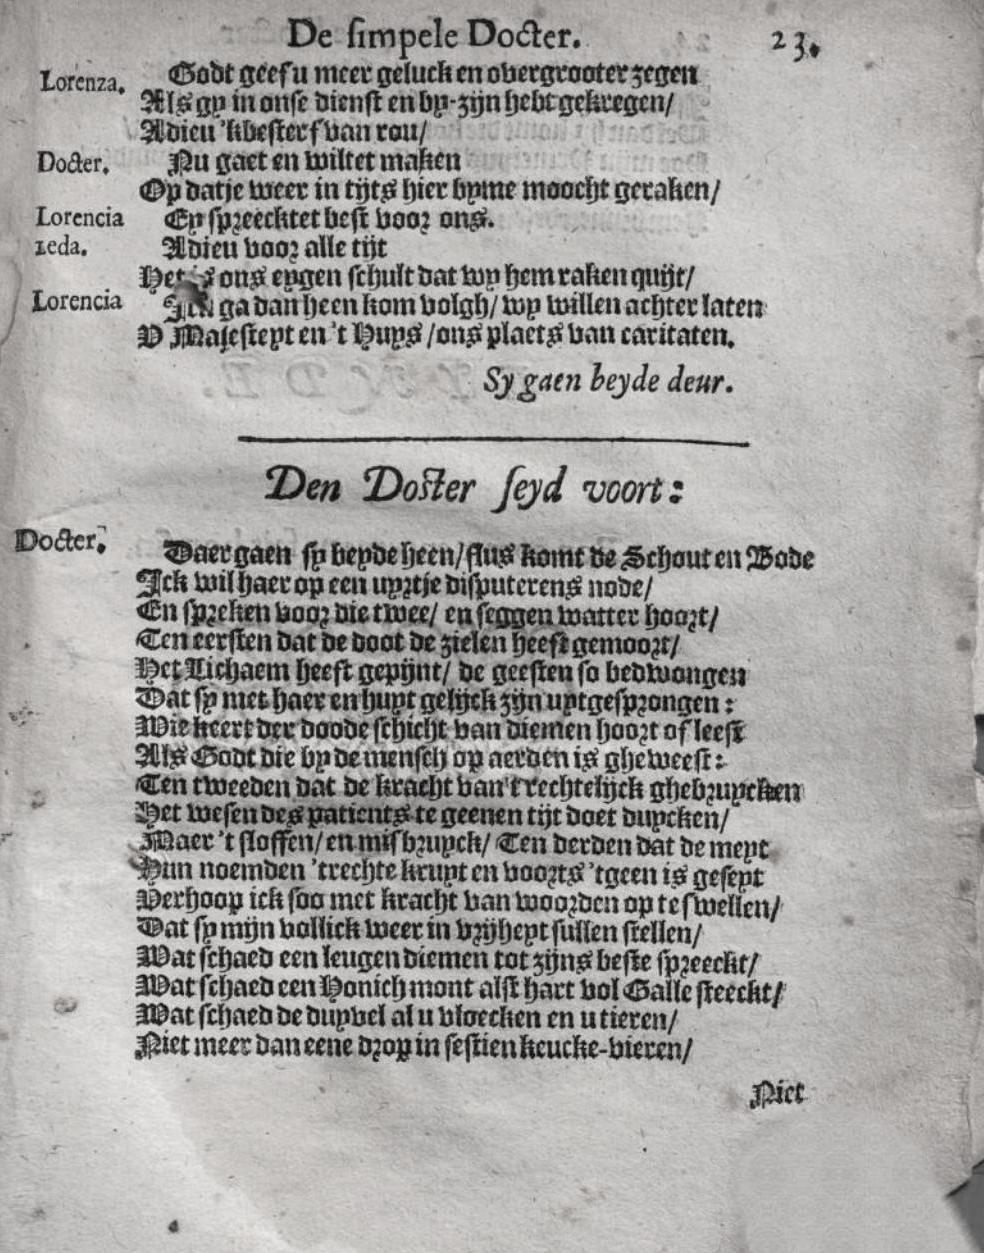 De simpele Docter. 23.
Lorenza. Godt geef u meer geluck en overgrooter zegen
Als gy in onse dienst en by-zijn hebt gekregen/
Adieu 'kbesterf van rou/
Docter. Nu gaet en wiltet maken
Op datje weer in tijts hier byme moocht geraken/
Lorencia Ey spreecktet best voor ons.
reda. Adieu voor alle tijt
Het is ons eygen schult dat wy hem raken quijt/
Lorencia Ick ga dan heen kom volgh/ wy willen achter laten
V Majesteyt en 't Huys /ons plaets van caritaten.
Sy gaen beyde deur.
Den Docter seyd voort:
Docter. Daer gaen sy beyde heen/flus komt de Schout en Bode
Ick wil haer op een uyrtje disputerens node/
En spreken voor die twee/ en seggen watter hoort/
Ten eersten dat de doot de zielen heeft gemoort/
Het Lichaem heeft gepijnt/ de geesten so bedwongen
Dat sy met haer en huyt gelijck zijn uytgesprongen:
Wie keert der doode schicht van diemen hoort of leest
Als Godt die by de mensch op aerden is gheweest:
Ten tweeden dat de kracht van't rechtelijck ghebruycken
Het wesen des patients te geenen tijt doet duycken/
Maer 't sloffen/ en misbruyck/ Ten derden dat de meyt
Hun noemden 'trechte kruyt en voorts 'tgeen is geseyt
Verhoop ick soo met kracht van woorden op te swellen/
Dat sy mijn vollick weer in vrijheyt sullen stellen/
Wat schaed een leugen diemen tot zijns beste spreeckt/
Wat schaed een Honich mont alst hart vol Galle steeckt/
Wat schaed de duyvel al u vloecken en u tieren/
Niet meer dan eene drop in sestien keucke-vieren/
Niet